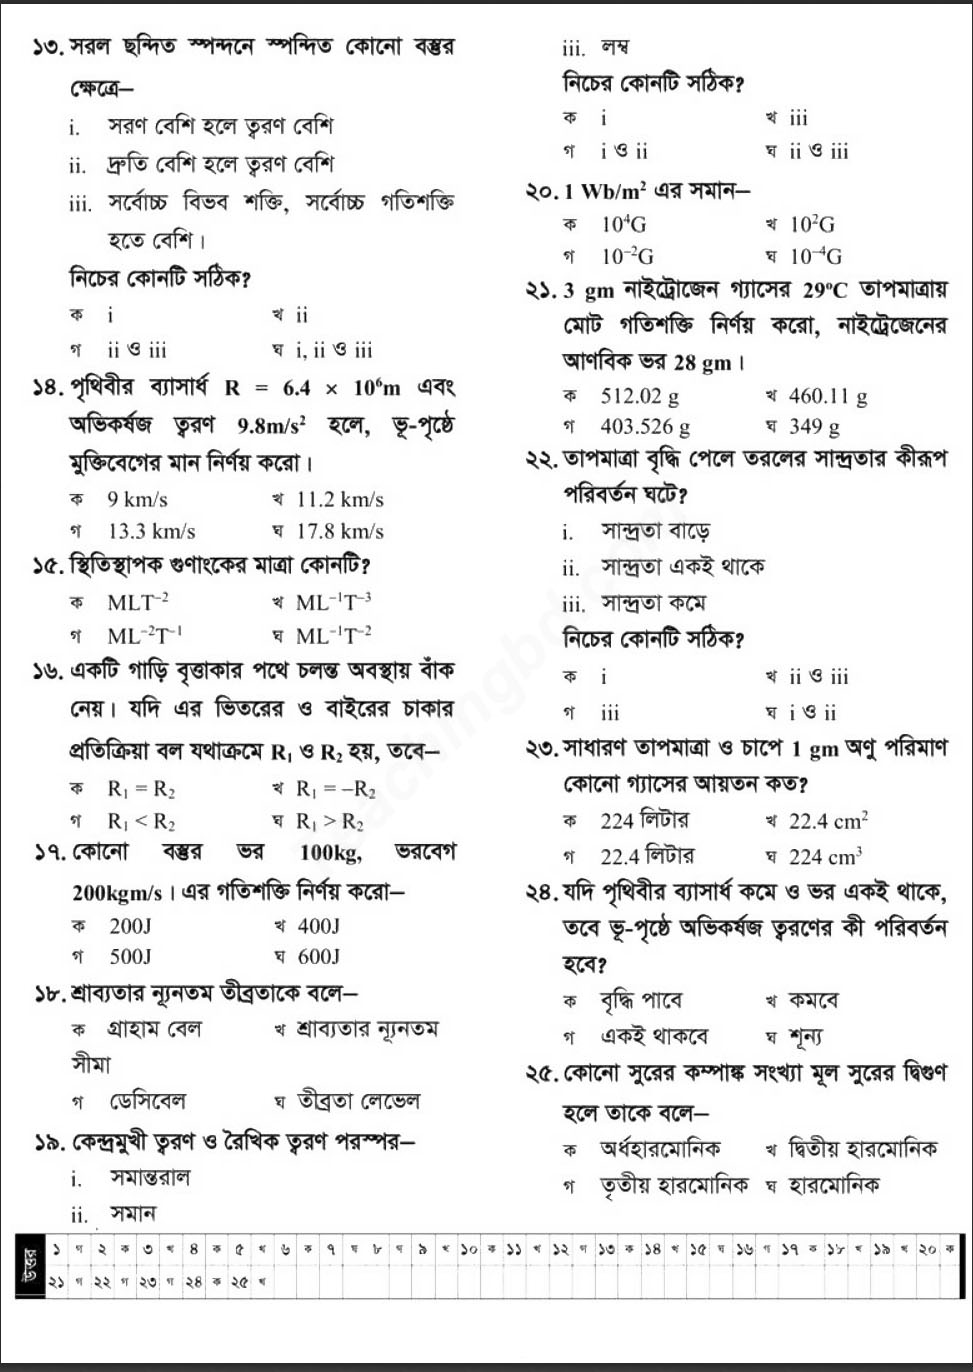 ১৩. সরল ছন্দিত স্পন্দনে স্পন্দিত কোনো বস্তুর
ক্ষেত্রে—
i. সরণ বেশি হলে ত্বরণ বেশি
ii. দ্রুতি বেশি হলে ত্বরণ বেশি
iii. সর্বোচ্চ বিভব শক্তি, সর্বোচ্চ গতিশক্তি
হতে বেশি।
নিচের কোনটি সঠিক?
ক i খ ii
গ ii ও iii ঘ i, ii ও iii
১৪. পৃথিবীর ব্যাসার্ধ R = 6.4 × 10⁶m এবং
অভিকর্ষজ ত্বরণ 9.8m/s² হলে, ভূ-পৃষ্ঠে
মুক্তিবেগের মান নির্ণয় করো।
ক 9 km/s খ 11.2 km/s
গ 13.3 km/s ঘ 17.8 km/s
১৫. স্থিতিস্থাপক গুণাংকের মাত্রা কোনটি?
ক MLT⁻² খ ML⁻¹T⁻³
গ ML⁻²T⁻¹ ঘ ML⁻¹T⁻²
১৬. একটি গাড়ি বৃত্তাকার পথে চলন্ত অবস্থায় বাঁক
নেয়। যদি এর ভিতরের ও বাইরের চাকার
প্রতিক্রিয়া বল যথাক্রমে R₁ ও R₂ হয়, তবে—
ক R₁ = R₂ খ R₁ = –R₂
গ R₁ < R₂ ঘ R₁ > R₂
১৭. কোনো বস্তুর ভর 100kg, ভরবেগ
200kgm/s। এর গতিশক্তি নির্ণয় করো—
ক 200J খ 400J
গ 500J ঘ 600J
১৮. শ্রাব্যতার ন্যূনতম তীব্রতাকে বলে—
ক গ্রাহাম বেল খ শ্রাব্যতার ন্যূনতম
সীমা
গ ডেসিবেল ঘ তীব্রতা লেভেল
১৯. কেন্দ্রমুখী ত্বরণ ও রৈখিক ত্বরণ পরস্পর—
i. সমান্তরাল
ii. সমান
iii. লম্ব
নিচের কোনটি সঠিক?
ক i খ iii
গ i ও ii ঘ ii ও iii
২০. 1 Wb/m² এর সমান—
ক 10⁴G খ 10²G
গ 10⁻²G ঘ 10⁻⁴G
২১. 3 gm নাইট্রোজেন গ্যাসের 29°C তাপমাত্রায়
মোট গতিশক্তি নির্ণয় করো, নাইট্রেজেনের
আণবিক ভর 28 gm।
ক 512.02 g খ 460.11 g
গ 403.526 g ঘ 349 g
২২. তাপমাত্রা বৃদ্ধি পেলে তরলের সান্দ্রতার কীরূপ
পরিবর্তন ঘটে?
i. সান্দ্রতা বাড়ে
ii. সান্দ্রতা একই থাকে
iii. সান্দ্রতা কমে
নিচের কোনটি সঠিক?
ক i খ ii ও iii
গ iii ঘ i ও ii
২৩. সাধারণ তাপমাত্রা ও চাপে 1 gm অণু পরিমাণ
কোনো গ্যাসের আয়তন কত?
ক 224 লিটার খ 22.4 cm²
গ 22.4 লিটার ঘ 224 cm³
২৪. যদি পৃথিবীর ব্যাসার্ধ কমে ও ভর একই থাকে,
তবে ভূ-পৃষ্ঠে অভিকর্ষজ ত্বরণের কী পরিবর্তন
হবে?
ক বৃদ্ধি পাবে খ কমবে
গ একই থাকবে ঘ শূন্য
২৫. কোনো সুরের কম্পাঙ্ক সংখ্যা মূল সুরের দ্বিগুণ
হলে তাকে বলে—
ক অর্ধহারমোনিক খ দ্বিতীয় হারমোনিক
গ তৃতীয় হারমোনিক ঘ হারমোনিক
উত্তর
১ গ ২ ক ৩ খ ৪ ক ৫ খ ৬ ক ৭ ঘ ৮ গ ৯ খ ১০ ক ১১ খ ১২ গ ১৩ ক ১৪ খ ১৫ ঘ ১৬ গ ১৭ ক ১৮ খ ১৯ খ ২০ ক
২১ গ ২২ গ ২৩ গ ২৪ ক ২৫ খ